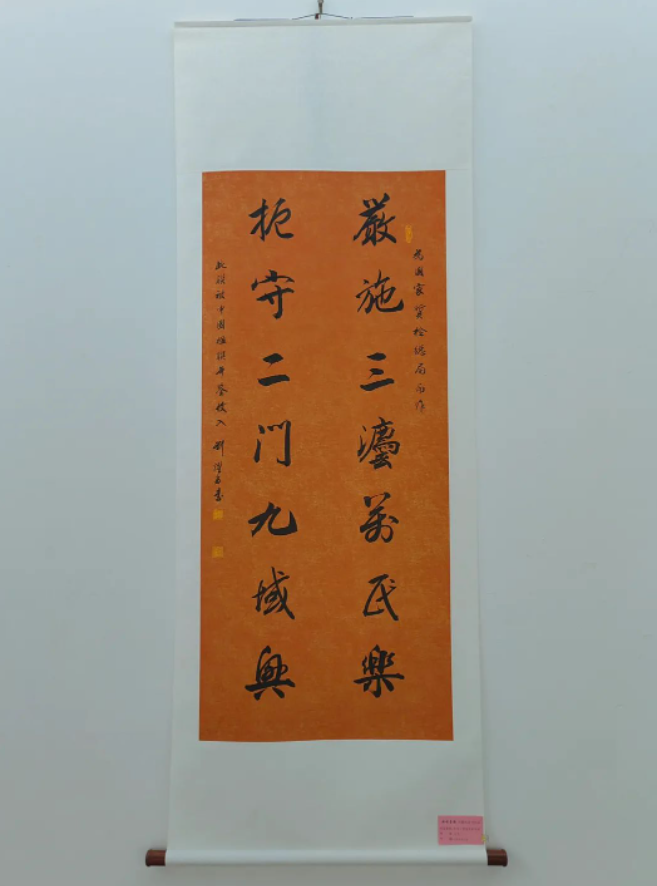 為國家質檢總局而撰
嚴施三灋萬民樂
扼守二門九域興
此聯被中國楹聯年鑒收入